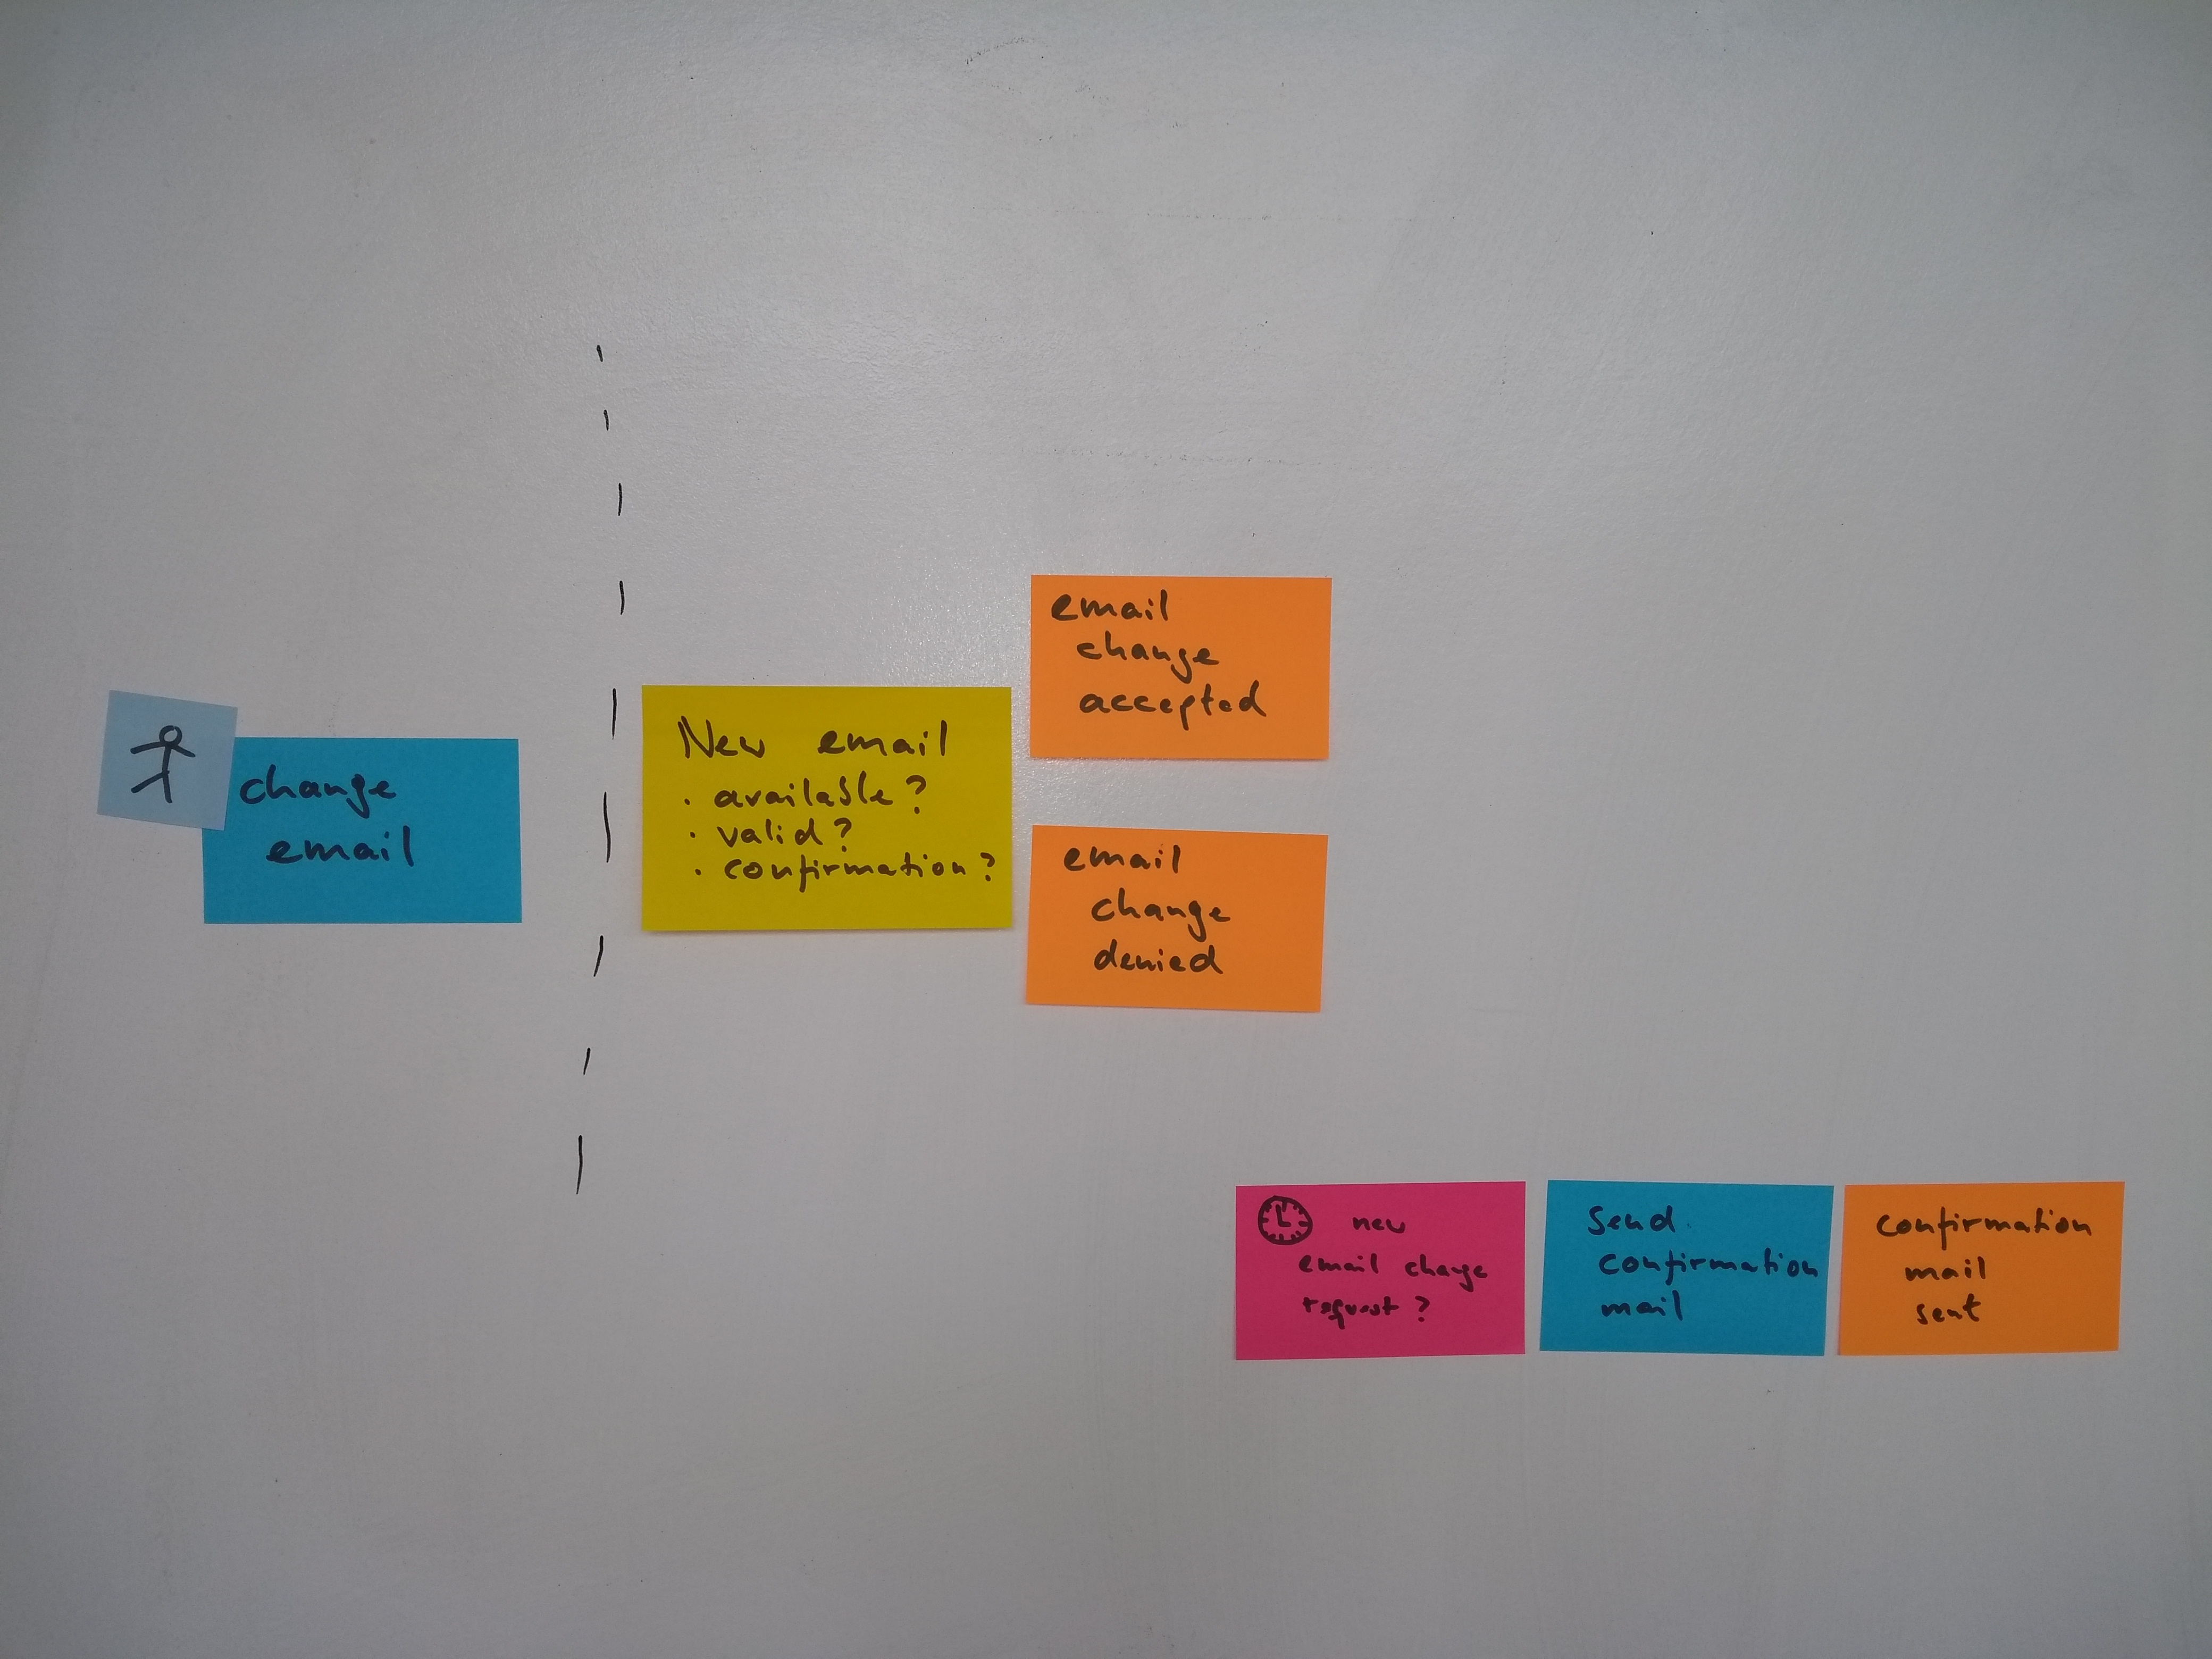 change
email
New email
· available?
· valid?
· confirmation?
email
change
accepted
email
change
denied
new
email change
request?
Send
confirmation
mail
confirmation
mail
sent